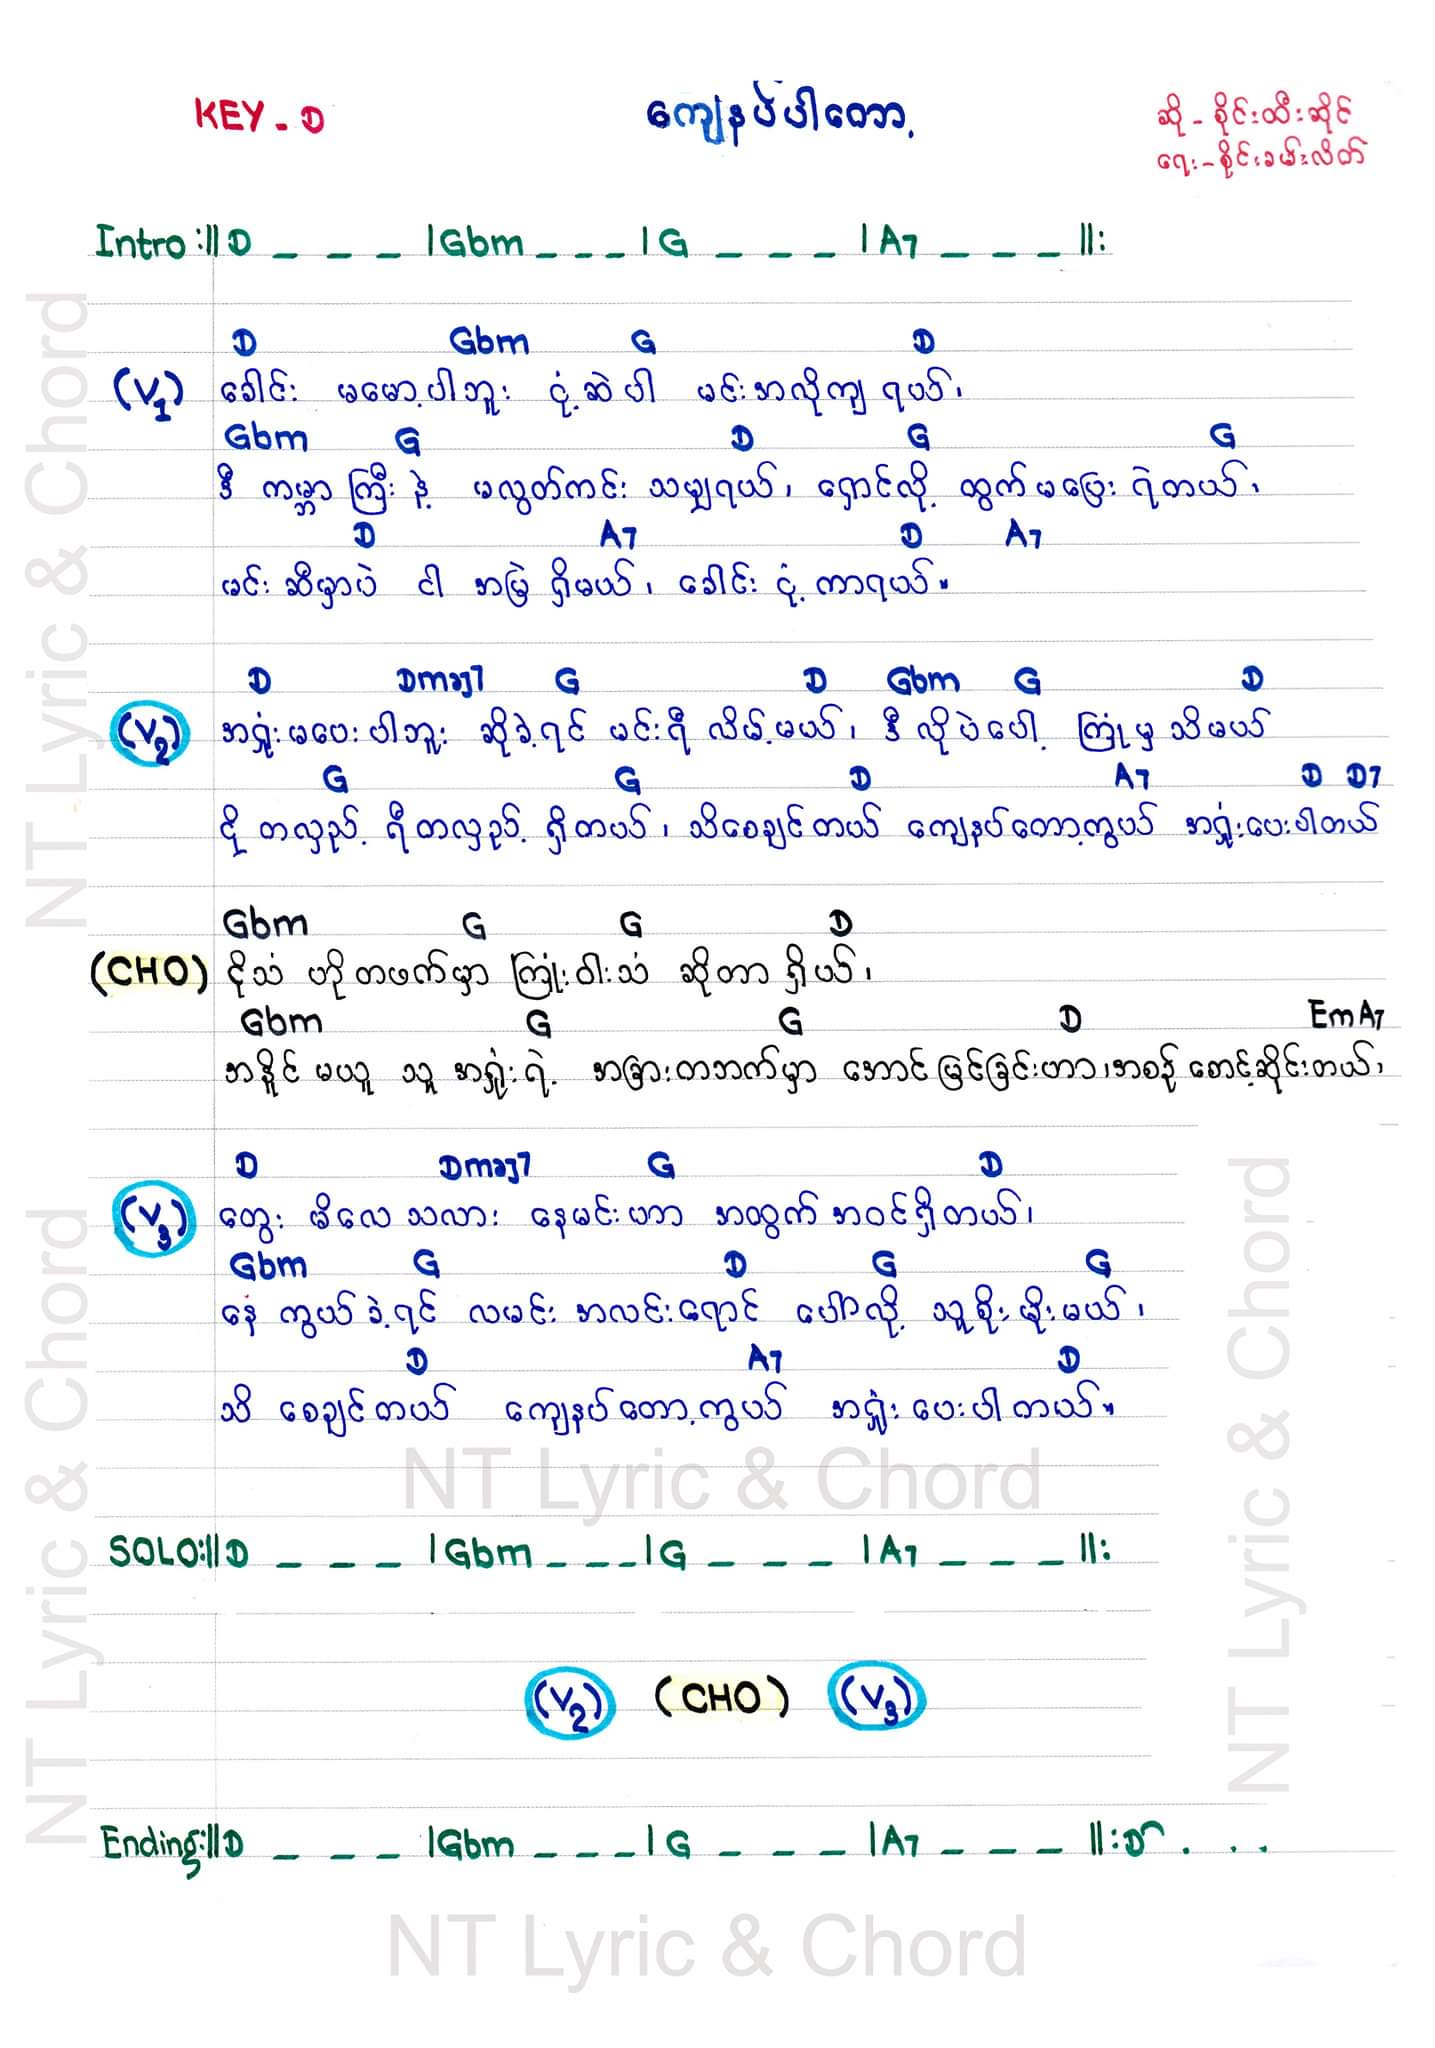 KEY - D
ကျေနပ်ပါတော့
ဆို - စိုင်းထီးဆိုင်
ရေး - စိုင်းခမ်းလိတ်
Intro :|| D _ _ _ | Gbm _ _ _ | G _ _ _ | A7 _ _ _ ||:
D Gbm G D
(V1) ခေါင်း မမော့ပါဘူး ငုံ့ဆဲပါ မင်းအလိုကျ ရယ်၊
Gbm G D G G
ဒီ ကမ္ဘာကြီးနဲ့ မလွတ်ကင်း သမျှရယ်၊ ရှောင်လို့ ထွက်မပြေး ရဲတယ်၊
D A7 D A7
မင်း ဆီမှာပဲ ငါ အမြဲ ရှိမယ်၊ ခေါင်း ငုံ့ ကာရယ်။
D Dmaj7 G D Gbm G D
(V2) အရှုံးမပေးပါဘူး ဆိုခဲ့ရင် မင်းရီ လိမ့်မယ်၊ ဒီလိုပဲပေါ့ ကြုံမှ သိမယ်
G G D A7 D D7
ငို တလှည့် ရီတလှည့် ရှိတယ်၊ သိစေချင်တယ် ကျေနပ်တော့ကွယ် အရှုံးပေးပါတယ်
Gbm G G D
(CHO) ငိုသံ ဟိုတဖက်မှာ ကြုံးဝါးသံ ဆိုတာ ရှိတယ်၊
Gbm G G D Em A7
အနိူင် မယူ သူ အရှုံးရဲ့ အခြားတဘက်မှာ အောင်မြင်ခြင်းဟာ၊အစဉ် စောင့်ဆိုင်းတယ်၊
D Dmaj7 G D
(V3) တွေး မိလေသလား နေမင်းဟာ အထွက်အဝင်ရှိတယ်၊
Gbm G D G G
နေ ကွယ်ခဲ့ရင် လမင်း အလင်းရောင် ပေါ်လို့ သူစိုးမိုးမယ်၊
D A7 D
သိ စေချင်တယ် ကျေနပ်တော့ကွယ် အရှုံး ပေးပါတယ်။
SOLO:|| D _ _ _ | Gbm _ _ _ | G _ _ _ | A7 _ _ _ ||:
(V2) (CHO) (V3)
Ending:|| D _ _ _ | Gbm _ _ _ | G _ _ _ | A7 _ _ _ ||: D . . .
NT Lyric & Chord
NT Lyric & Chord
NT Lyric & Chord
NT Lyric & Chord
NT Lyric & Chord